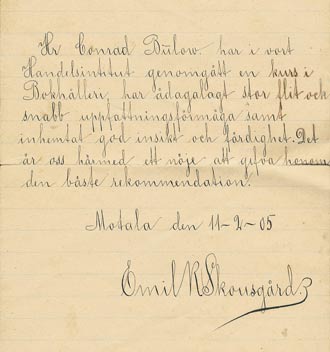 Hr Conrad Bülow. har i vort
Handelsintitut genomgått en kurs i
Bokhålleri, har ådagalagt stor flit och
snabb uppfattningsförmåga samt
inhemtat god insikt och färdighet. Det
är oss härmed ett nöje att gefva honom
den bäste rekommendation.
Motala den 11-2-05
Emil R Skousgård